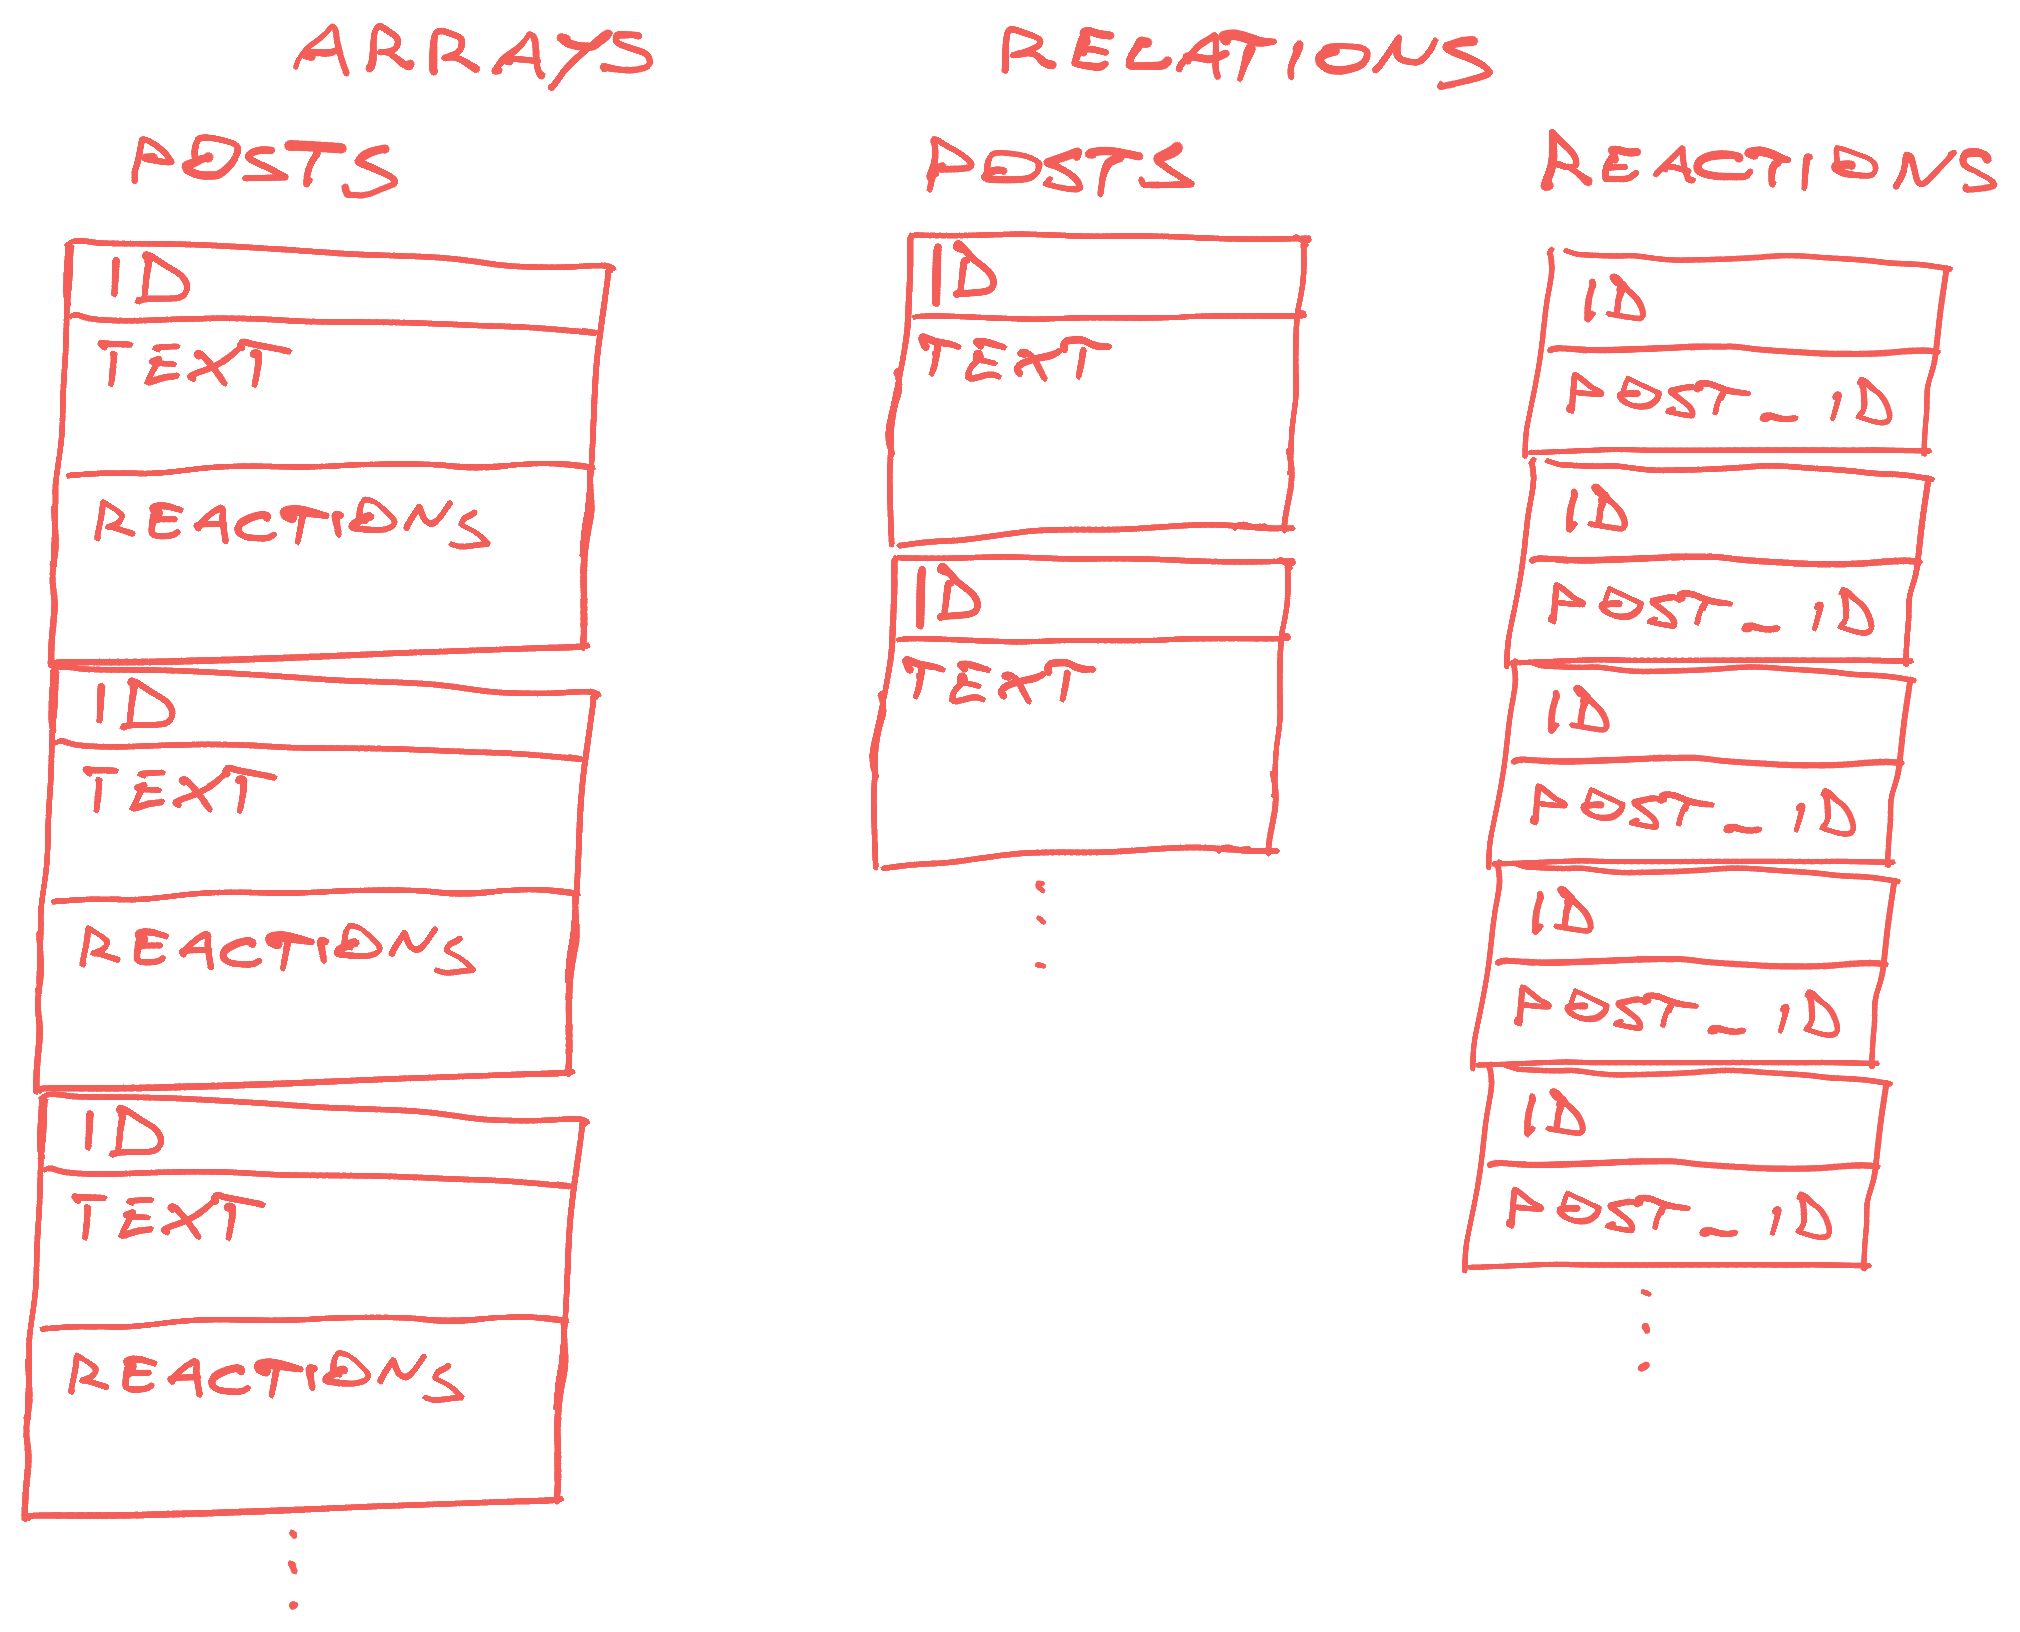 ARRAYS
RELATIONS
POSTS
ID
TEXT
REACTIONS
ID
TEXT
REACTIONS
ID
TEXT
REACTIONS
POSTS
ID
TEXT
ID
TEXT
REACTIONS
ID
POST_ID
ID
POST_ID
ID
POST_ID
ID
POST_ID
ID
POST_ID